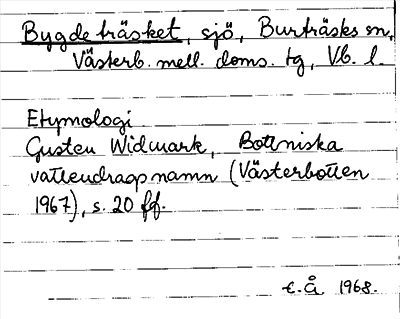 Bygdeträsket, sjö, Burträsks sn,
Västerb. mell. doms. tg, Vb. l.
Etymologi
Gusten Widmark, Bottniska
vattendragsnamn (Västerbotten
1967), s. 20 ff.
E.Å 1968.